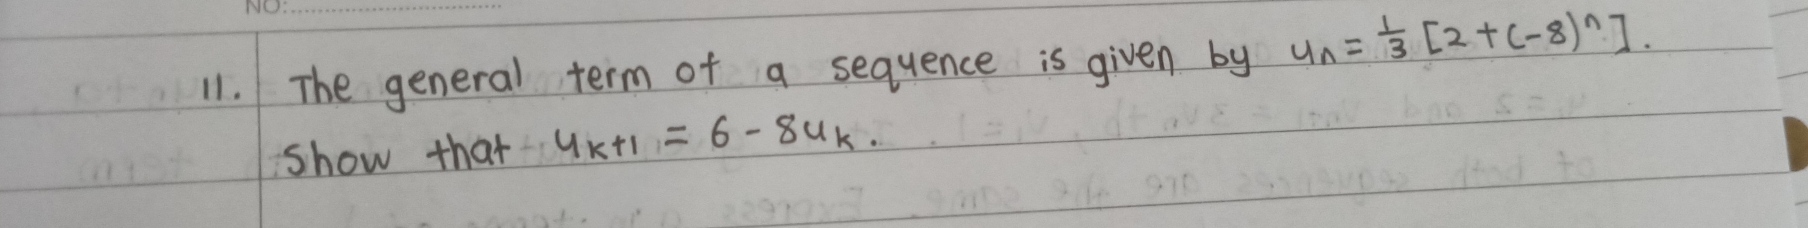 NO:
11. The general term of a sequence is given by uₙ = 1/3 [2+(-8)ⁿ].
Show that uₖ₊₁ = 6 - 8uₖ.